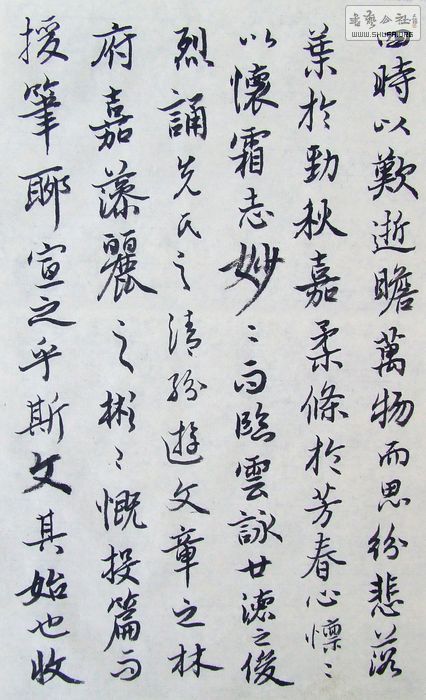 四時以歎逝瞻萬物而思紛悲落
葉於勁秋嘉柔條於芳春心懍〻
以懷霜志妙〻而臨雲詠世德之俊
烈誦先民之清紛遊文章之林
府嘉藻麗之彬〻慨投篇而
援筆聊宣之乎斯文其始也收
书艺公社
WWW.SHUFA.ORG